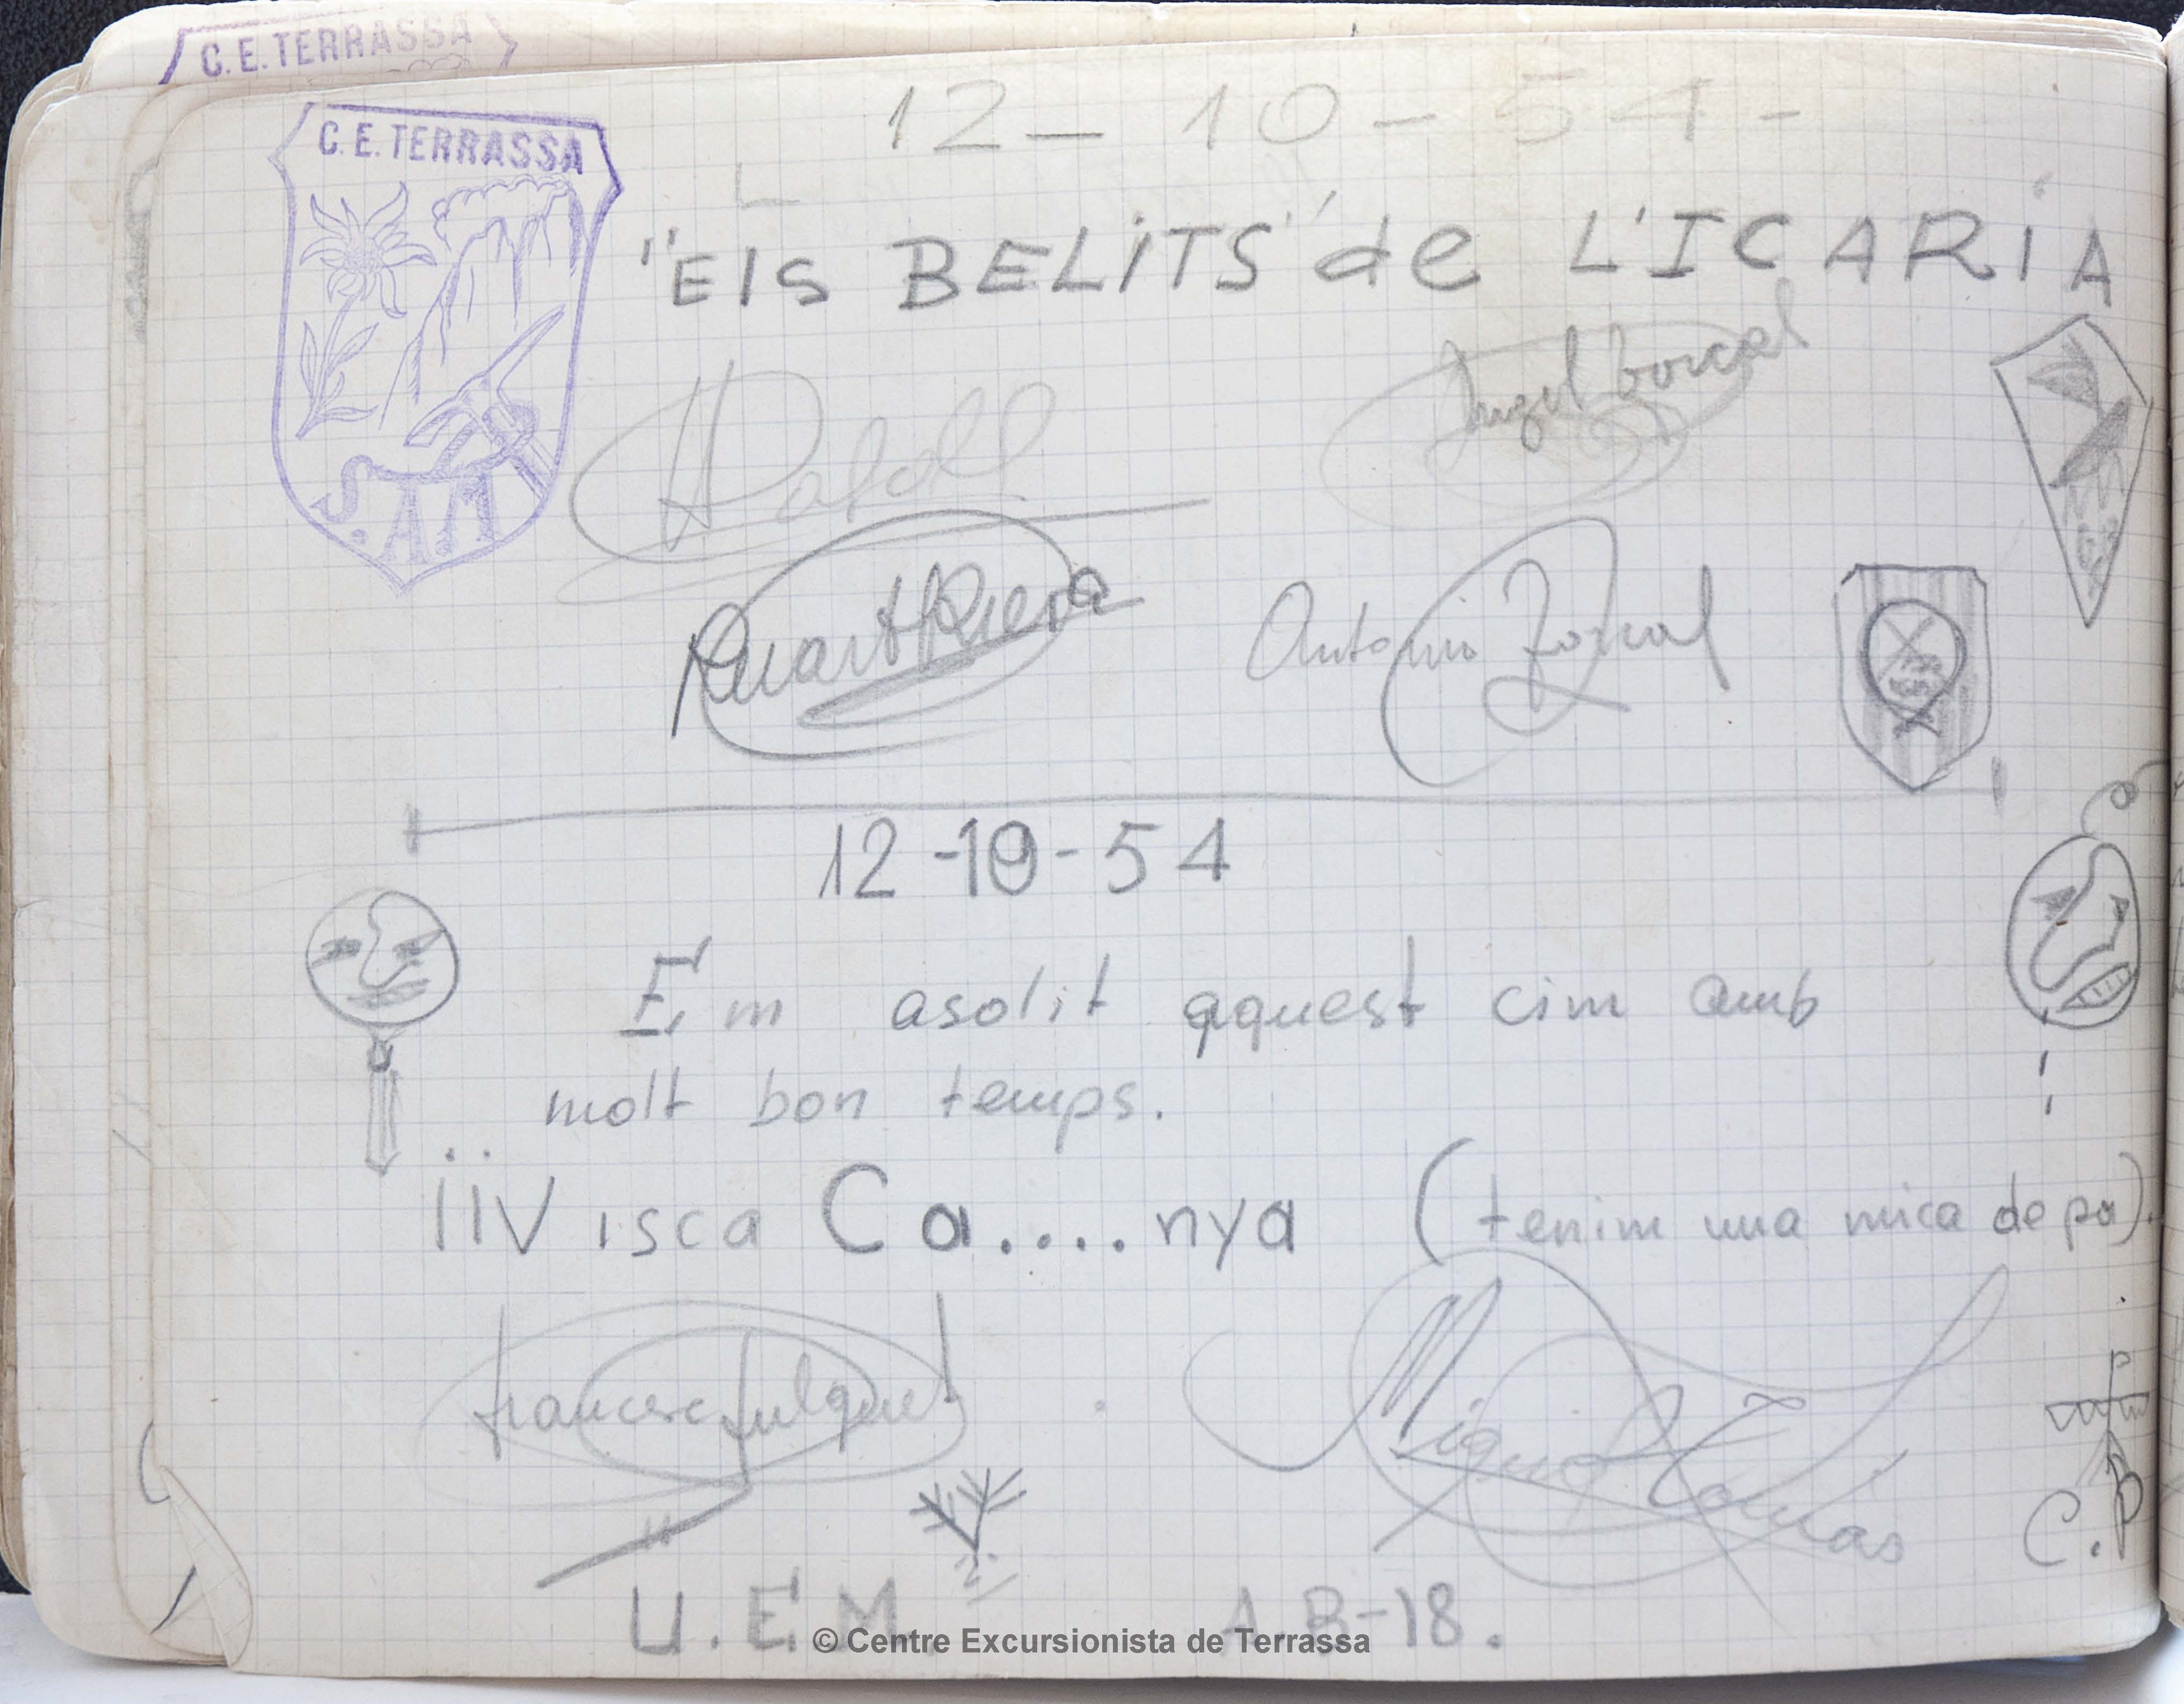 C. E. TERRASSA
C. E. TERRASSA
S. A. M
12 - 10 - 54 -
"Els BELiTS" de L'ICARiA
Angel
Antonio
12 - 10 - 54
Em asolit aquest cim amb
molt bon temps.
¡¡Visca Ca....nya (tenim una mica de pa).
francesc
Miquel Comas
C. B
U. E. M. A. B-18.
© Centre Excursionista de Terrassa